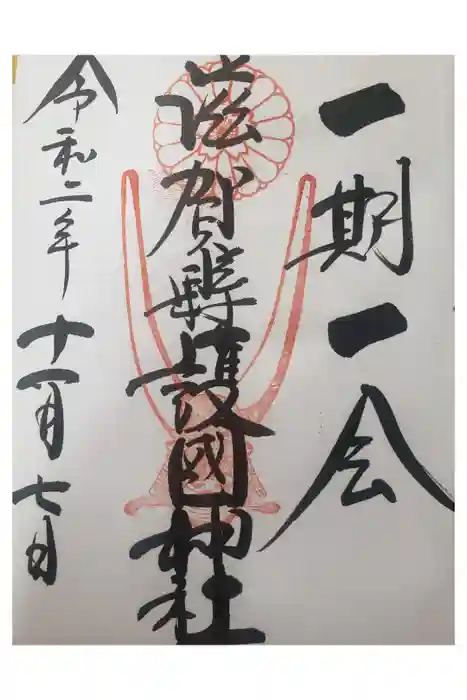 一期一会
滋賀縣護國神社
令和二年十一月七日